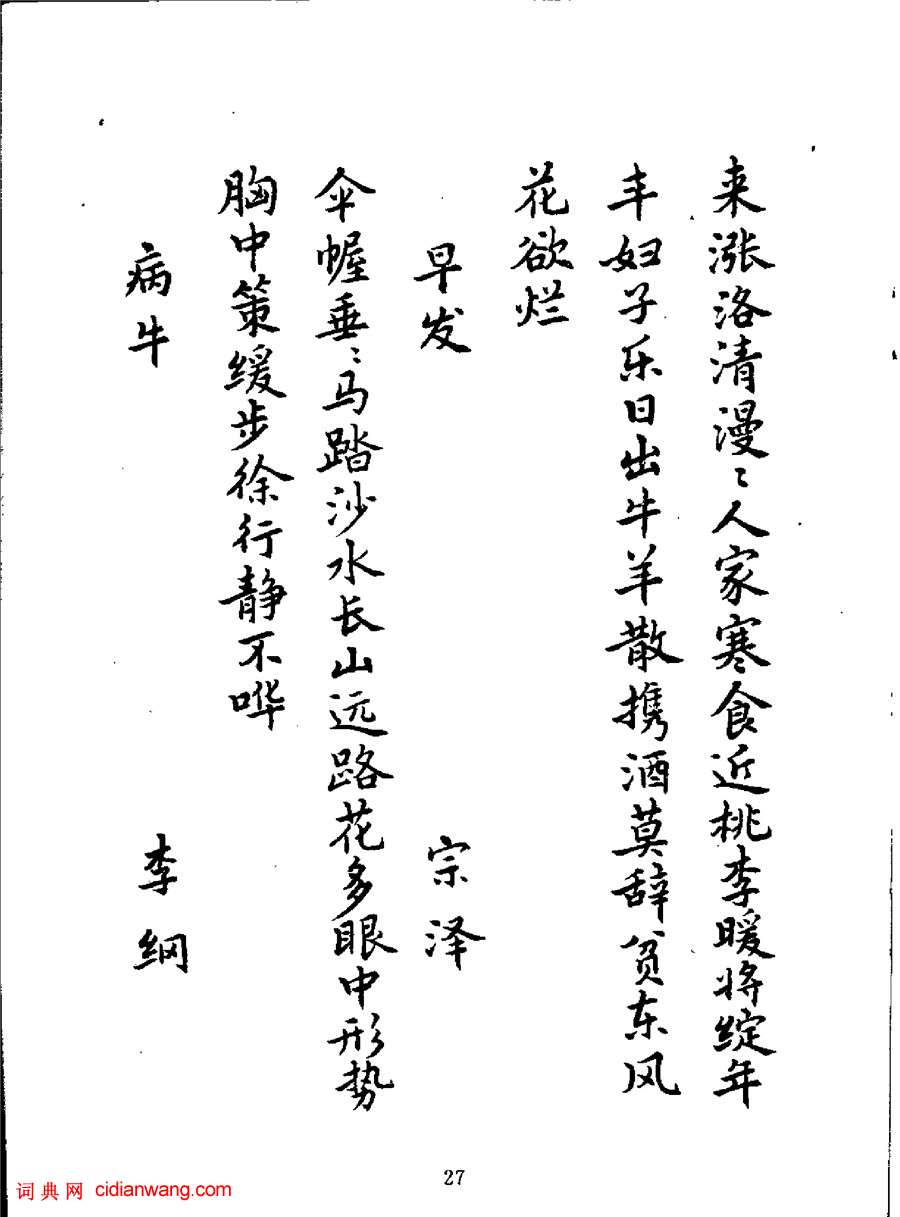 来涨洛清漫〻人家寒食近桃李暖将绽年
丰妇子乐日出牛羊散携酒莫辞贫东风
花欲烂
早发 宗泽
伞幄垂〻马踏沙水长山远路花多眼中形势
胸中策缓步徐行静不哗
病牛 李纲
27
词典网 cidianwang.com